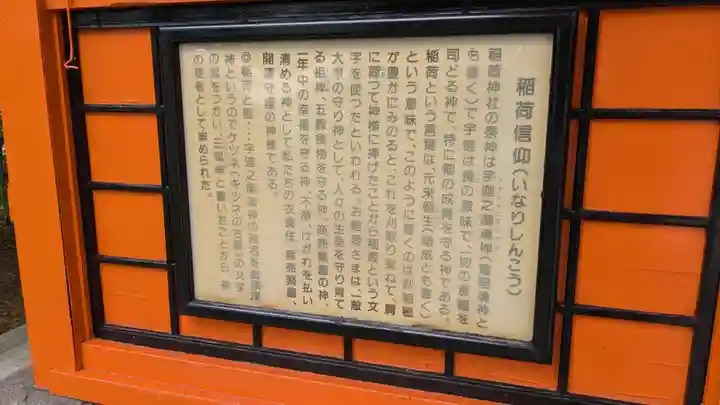 稲荷信仰(いなりしんこう)
稲荷神社の祭神は宇迦之御魂神(倉稲魂神と
も書く)で宇迦は食の意味で、切の食糧を
司どる神で。特に稲の成育を守る神である。
稲荷という言葉は、元来稲生(稲成とも書く)
という意味で、このように書くのは秋稲穂
が豊かにみのると、これを刈取り束ねて、肩
に荷つて神様に捧げたことから稲荷という文
字を使つたといわれる。お稲荷さまは、一般
大衆の守り神として、人々の生命を守り育て
る祖神、五穀穫物を守る神、商売繁盛の神、
一年中の幸福を守る神、不浄、けがれを払い
清める神として私たちの衣食住、商売繁盛、
開運守護の神様である。
◎稲荷と狐‥‥宇迦之御魂神の別名を御饌津
神というのでケツネ(キツネの古語)の文字
の狐をつかい、三狐神と書いたことから、神
の使者として崇められた。